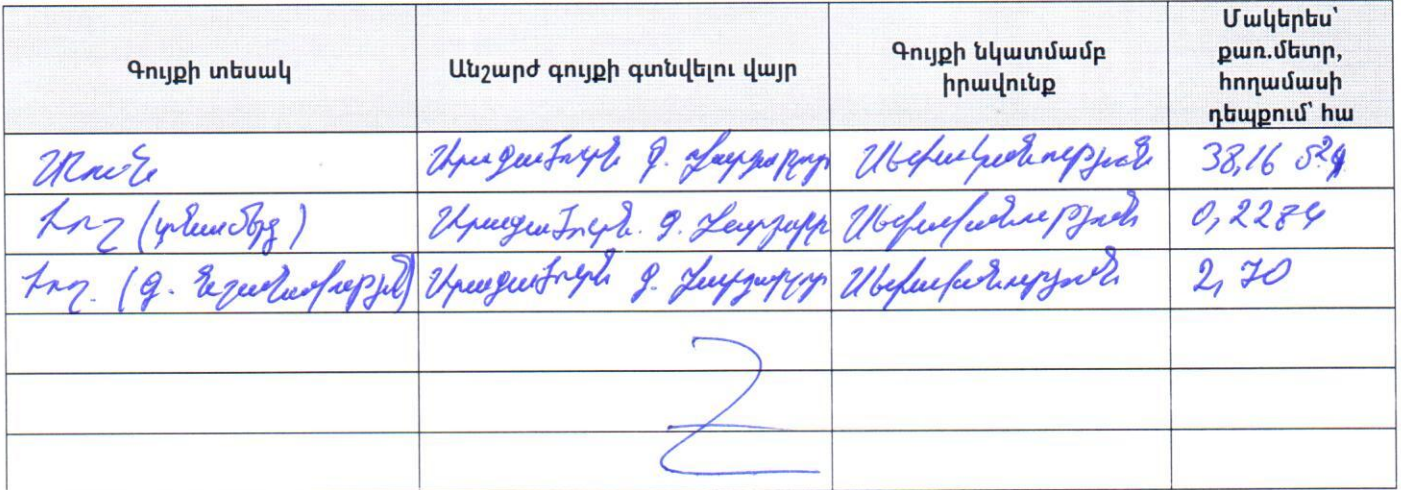 Գույքի տեսակ
Անշարժ գույքի գտնվելու վայր
Գույքի նկատմամբ
իրավունք
Մակերես՝
քառ.մետր,
հողամասի
դեպքում՝ հա
Տուն Արագածոտն գ. Սեփականություն 38,16
Հող (տնամերձ) Արագածոտն. գ. Սեփականություն
Հող. (գ. նշանակության) Արագածոտն գ. Սեփականություն 2,70